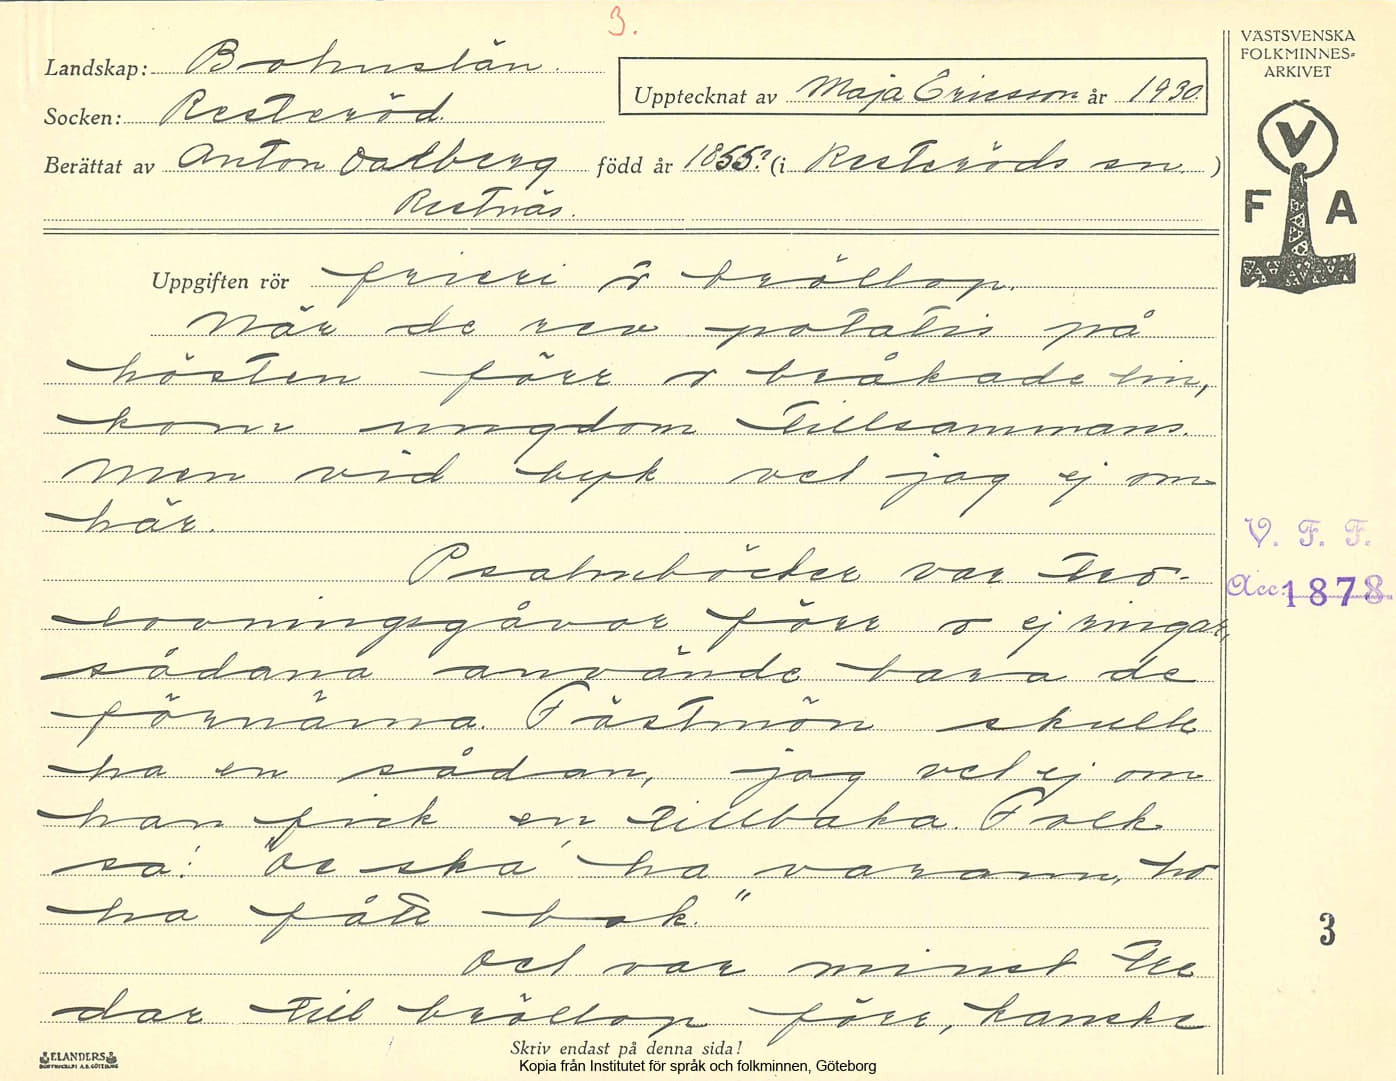 3.
VÄSTSVENSKA
FOLKMINNES-
ARKIVET
Landskap: Bohuslän.
Upptecknat av Maja Ericsson år 1930
Socken: Resteröd.
Berättat av Anton Dalberg född år 1855? (i Resteröds sn. )
Restnäs.
V
F A
Uppgiften rör frieri o bröllop.
När de rev potatis på
hösten förr o bråkade lin,
kom ungdom tillsammans.
Men vid byk vet jag ej om
här.
Psalmböcker var tro-
lovningsgåvor förr o ej ringar,
sådana använde bara de
förnäma. Fästmön skulle
ha en sådan, jag vet ej om
han fick en tillbaka. Folk
sa: "De ska' ha varann, ho
ha fått bok."
Det var minst tre
dar till bröllop förr, kanske
V. F. F.
Acc: 1878
3
Skriv endast på denna sida!
ELANDERS
BOKTRYCKERI A.B. GÖTEBORG
Kopia från Institutet för språk och folkminnen, Göteborg